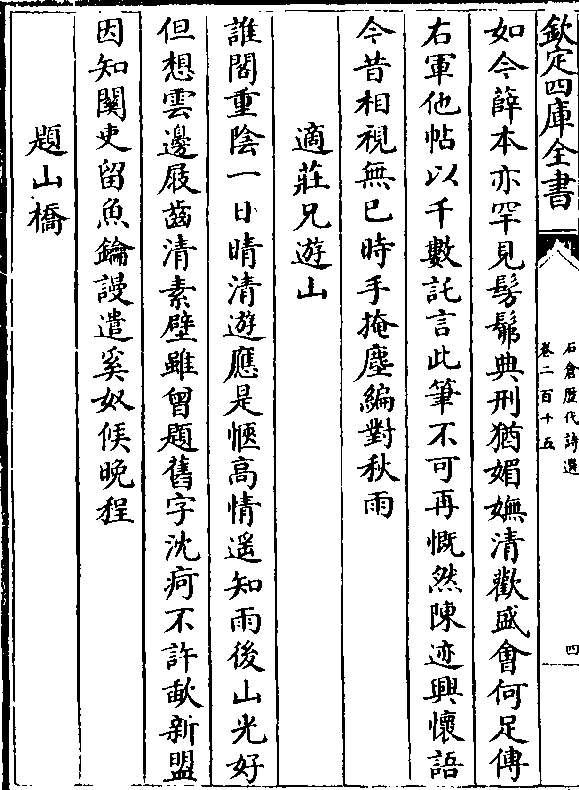 欽定四庫全書
石倉歷代詩選
卷二百十五
四
如今薛本亦罕見髣髴典刑猶媚嫵清歡盛會何足傳
右軍他帖以千數託言此筆不可再慨然陳迹興懷語
今昔相視無已時手掩塵編對秋雨
適莊兄遊山
誰閣重陰一日晴清遊應是愜高情遥知雨後山光好
但想雲邊屐齒清素壁雖曾題舊字沈疴不許歃新盟
因知関吏留魚鑰謾遣奚奴候晚程
題山橋